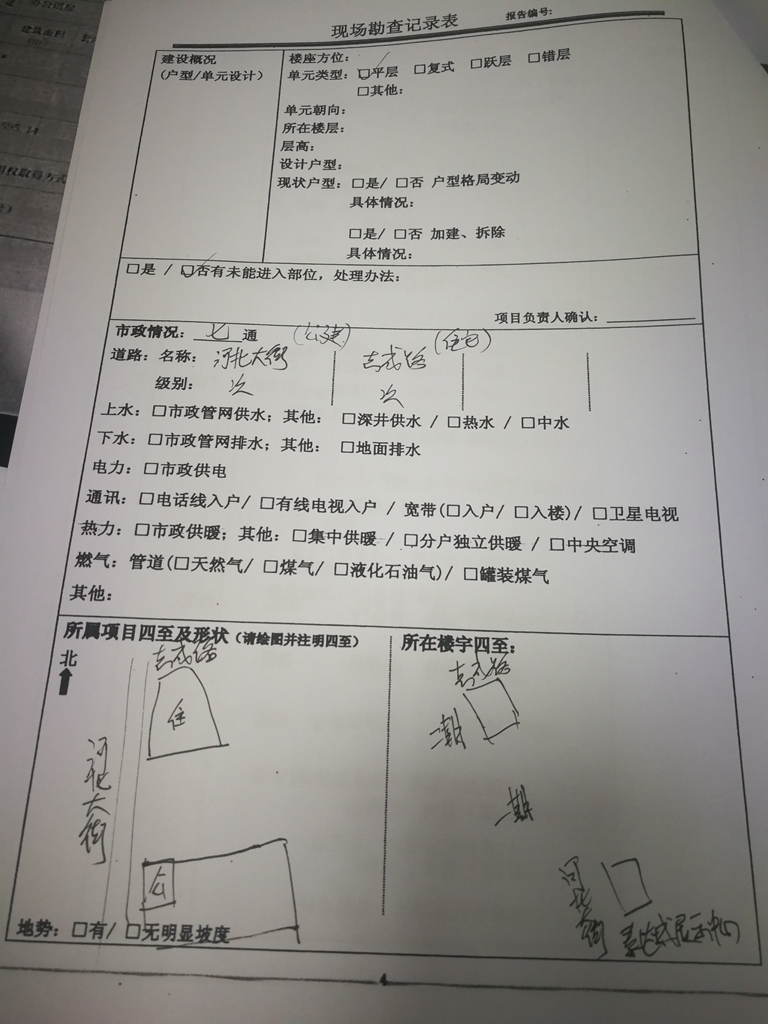 现场勘查记录表
报告编号:
建设概况
(户型/单元设计)
楼座方位:
单元类型: ☑平层 □复式 □跃层 □错层
□其他:
单元朝向:
所在楼层:
层高:
设计户型:
现状户型: □是/ □否 户型格局变动
具体情况:
□是/ □否 加建、拆除
具体情况:
□是 / ☑否有未能进入部位，处理办法:
项目负责人确认:
市政情况: 七 通 (公建) (住宅)
道路: 名称: 河北大街 吉成路
级别: 次 次
上水: □市政管网供水; 其他: □深井供水 / □热水 / □中水
下水: □市政管网排水; 其他: □地面排水
电力: □市政供电
通讯: □电话线入户/ □有线电视入户 / 宽带(□入户/ □入楼)/ □卫星电视
热力: □市政供暖; 其他: □集中供暖 / □分户独立供暖 / □中央空调
燃气: 管道(□天然气/ □煤气/ □液化石油气)/ □罐装煤气
其他:
所属项目四至及形状 (请绘图并注明四至)
北
吉成路
住
河北大街
公
地势: □有/ □无明显坡度
所在楼宇四至:
吉成路
二期
一期
河北大街
展示中心
4